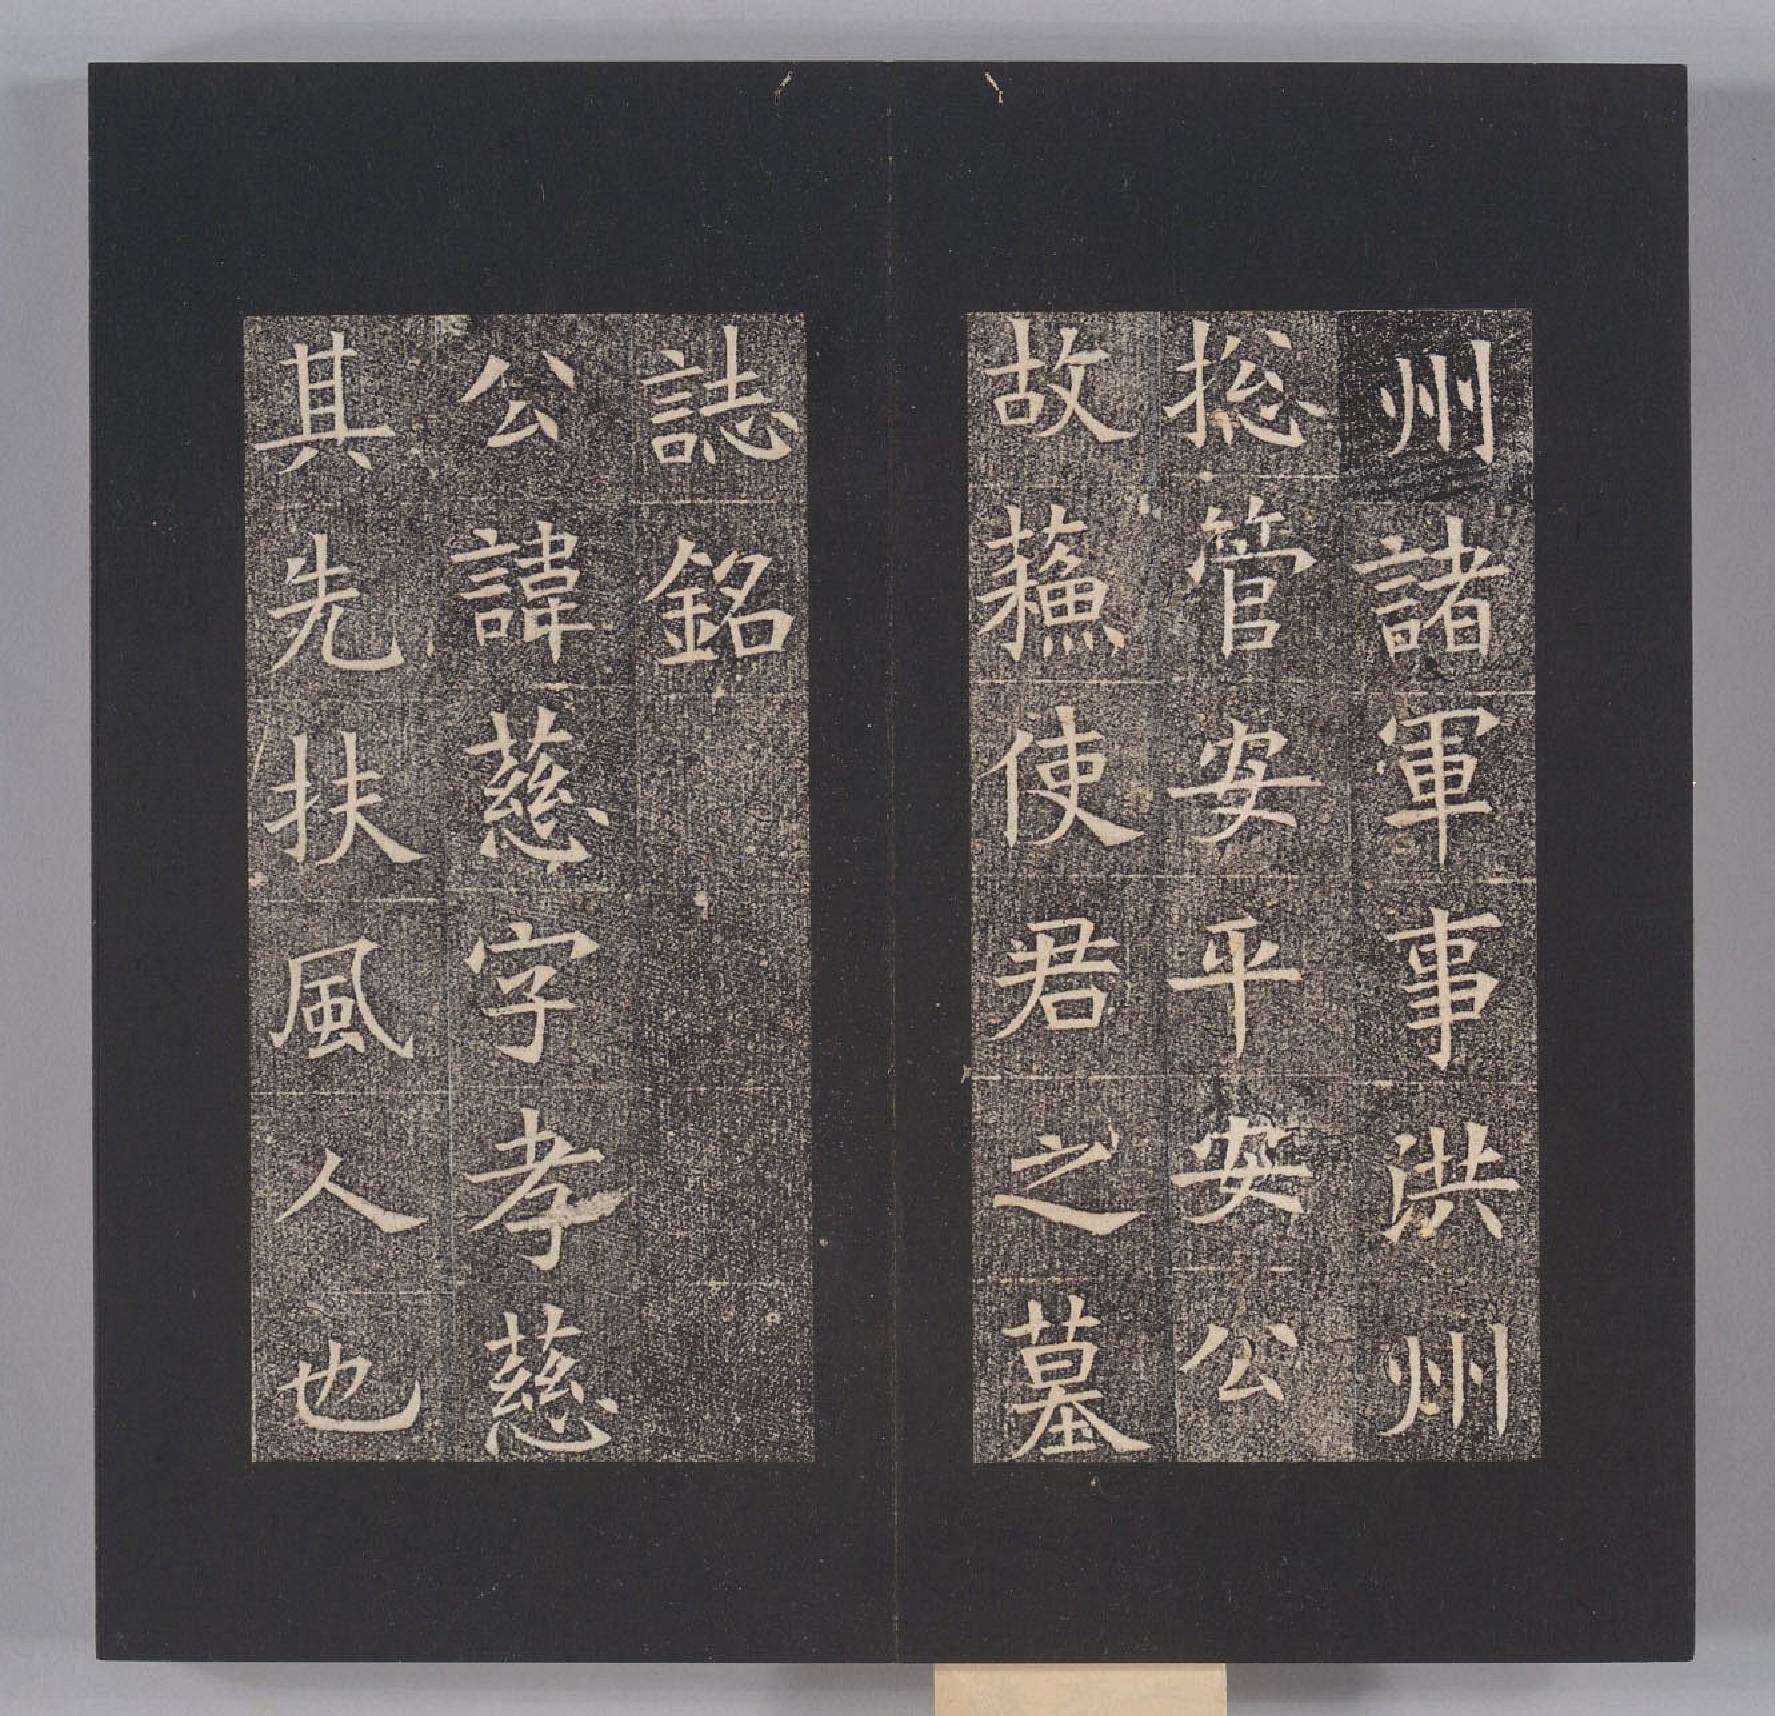 州諸軍事洪州
捴管安平安公
故蘓使君之墓
誌銘
公諱慈字孝慈
其先扶風人也